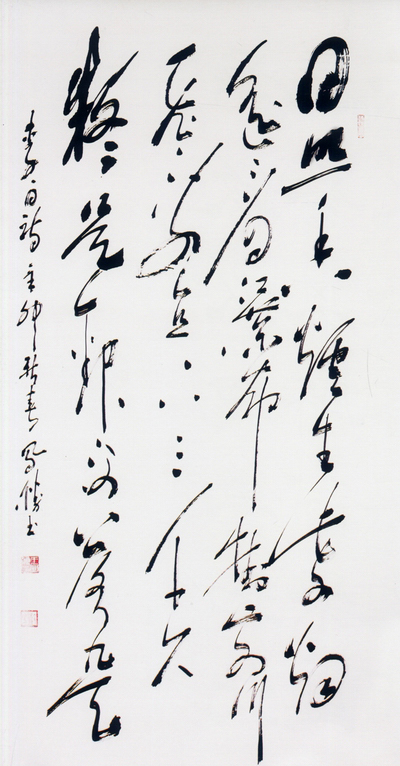 日照香爐生紫烟
遥看瀑布掛前川
飞流直下三千尺
疑是银河落九天
李太白诗 辛卯新春 書